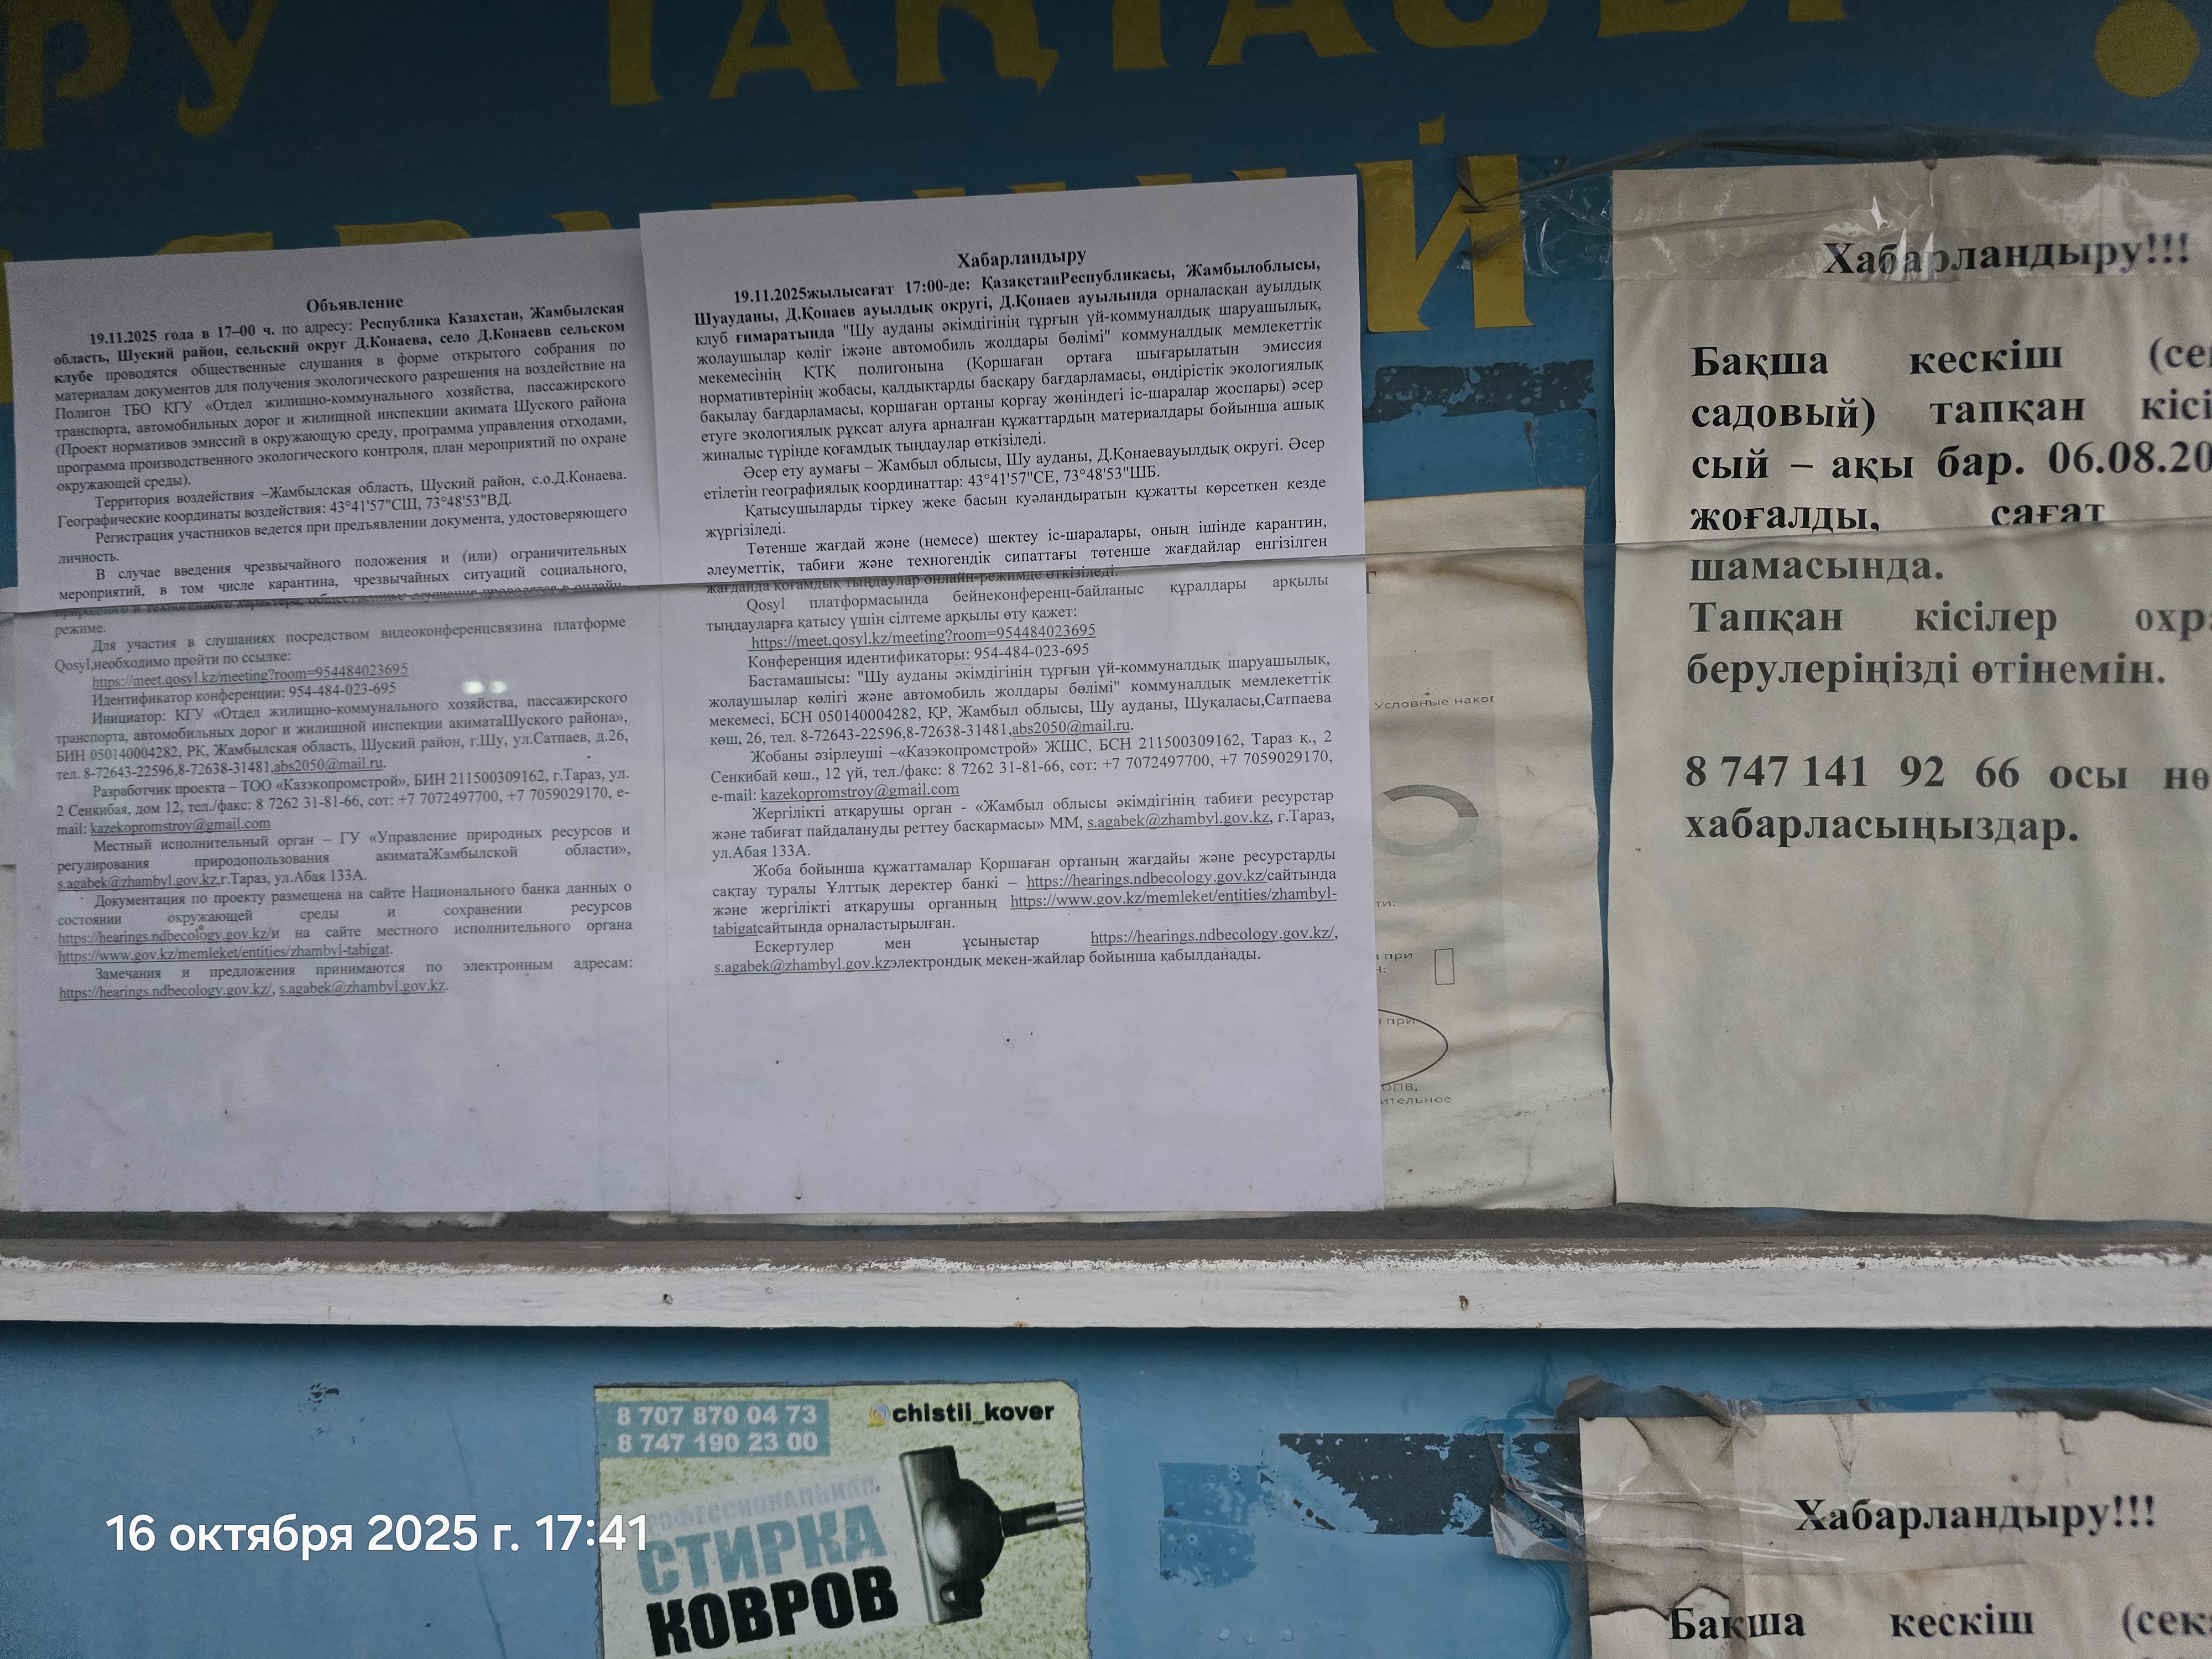 ру ТАҚТАСЫ
Объявление
19.11.2025 года в 17–00 ч. по адресу: Республика Казахстан, Жамбылская
область, Шуский район, сельский округ Д.Конаева, село Д.Конаевв сельском
клубе проводятся общественные слушания в форме открытого собрания по
материалам документов для получения экологического разрешения на воздействие на
Полигон ТБО КГУ «Отдел жилищно-коммунального хозяйства, пассажирского
транспорта, автомобильных дорог и жилищной инспекции акимата Шуского района
(Проект нормативов эмиссий в окружающую среду, программа управления отходами,
программа производственного экологического контроля, план мероприятий по охране
окружающей среды).
Территория воздействия –Жамбылская область, Шуский район, с.о.Д.Конаева.
Географические координаты воздействия: 43°41'57"СШ, 73°48'53"ВД.
Регистрация участников ведется при предъявлении документа, удостоверяющего
личность.
В случае введения чрезвычайного положения и (или) ограничительных
мероприятий, в том числе карантина, чрезвычайных ситуаций социального,
природного и техногенного характера, общественные слушания проводятся в онлайн-
режиме.
Для участия в слушаниях посредством видеоконференцсвязина платформе
Qosyl,необходимо пройти по ссылке:
https://meet.qosyl.kz/meeting?room=954484023695
Идентификатор конференции: 954-484-023-695
Инициатор: КГУ «Отдел жилищно-коммунального хозяйства, пассажирского
транспорта, автомобильных дорог и жилищной инспекции акиматаШуского района»,
БИН 050140004282, РК, Жамбылская область, Шуский район, г.Шу, ул.Сатпаев, д.26,
тел. 8-72643-22596,8-72638-31481,abs2050@mail.ru.
Разработчик проекта – ТОО «Казэкопромстрой», БИН 211500309162, г.Тараз, ул.
2 Сенкибая, дом 12, тел./факс: 8 7262 31-81-66, сот: +7 7072497700, +7 7059029170, e-
mail: kazekopromstroy@gmail.com
Местный исполнительный орган – ГУ «Управление природных ресурсов и
регулирования природопользования акиматаЖамбылской области»,
s.agabek@zhambyl.gov.kz,г.Тараз, ул.Абая 133А.
Документация по проекту размещена на сайте Национального банка данных о
состоянии окружающей среды и сохранении ресурсов
https://hearings.ndbecology.gov.kz/и на сайте местного исполнительного органа
https://www.gov.kz/memleket/entities/zhambyl-tabigat.
Замечания и предложения принимаются по электронным адресам:
https://hearings.ndbecology.gov.kz/, s.agabek@zhambyl.gov.kz.
Хабарландыру
19.11.2025жылысағат 17:00-де: ҚазақстанРеспубликасы, Жамбылоблысы,
Шуауданы, Д.Қонаев ауылдық округі, Д.Қонаев ауылында орналасқан ауылдық
клуб ғимаратында "Шу ауданы әкімдігінің тұрғын үй-коммуналдық шаруашылық,
жолаушылар көліг іжәне автомобиль жолдары бөлімі" коммуналдық мемлекеттік
мекемесінің ҚТҚ полигонына (Қоршаған ортаға шығарылатын эмиссия
нормативтерінің жобасы, қалдықтарды басқару бағдарламасы, өндірістік экологиялық
бақылау бағдарламасы, қоршаған ортаны қорғау жөніндегі іс-шаралар жоспары) әсер
етуге экологиялық рұқсат алуға арналған құжаттардың материалдары бойынша ашық
жиналыс түрінде қоғамдық тыңдаулар өткізіледі.
Әсер ету аумағы – Жамбыл облысы, Шу ауданы, Д.Қонаевауылдық округі. Әсер
етілетін географиялық координаттар: 43°41'57"СЕ, 73°48'53"ШБ.
Қатысушыларды тіркеу жеке басын куәландыратын құжатты көрсеткен кезде
жүргізіледі.
Төтенше жағдай және (немесе) шектеу іс-шаралары, оның ішінде карантин,
әлеуметтік, табиғи және техногендік сипаттағы төтенше жағдайлар енгізілген
жағдайда қоғамдық тыңдаулар онлайн-режимде өткізіледі.
Qosyl платформасында бейнеконференц-байланыс құралдары арқылы
тыңдауларға қатысу үшін сілтеме арқылы өту қажет:
https://meet.qosyl.kz/meeting?room=954484023695
Конференция идентификаторы: 954-484-023-695
Бастамашысы: "Шу ауданы әкімдігінің тұрғын үй-коммуналдық шаруашылық,
жолаушылар көлігі және автомобиль жолдары бөлімі" коммуналдық мемлекеттік
мекемесі, БСН 050140004282, ҚР, Жамбыл облысы, Шу ауданы, Шуқаласы,Сатпаева
көш, 26, тел. 8-72643-22596,8-72638-31481,abs2050@mail.ru.
Жобаны әзірлеуші –«Казэкопромстрой» ЖШС, БСН 211500309162, Тараз қ., 2
Сенкибай көш., 12 үй, тел./факс: 8 7262 31-81-66, сот: +7 7072497700, +7 7059029170,
e-mail: kazekopromstroy@gmail.com
Жергілікті атқарушы орган - «Жамбыл облысы әкімдігінің табиғи ресурстар
және табиғат пайдалануды реттеу басқармасы» ММ, s.agabek@zhambyl.gov.kz, г.Тараз,
ул.Абая 133А.
Жоба бойынша құжаттамалар Қоршаған ортаның жағдайы және ресурстарды
сақтау туралы Ұлттық деректер банкі – https://hearings.ndbecology.gov.kz/сайтында
және жергілікті атқарушы органның https://www.gov.kz/memleket/entities/zhambyl-
tabigatсайтында орналастырылған.
Ескертулер мен ұсыныстар https://hearings.ndbecology.gov.kz/,
s.agabek@zhambyl.gov.kzэлектрондық мекен-жайлар бойынша қабылданады.
Условные
при
при
ительное
Хабарландыру!!!
Бақша кескіш (се
садовый) тапқан кісі
сый – ақы бар. 06.08.20
жоғалды, сағат
шамасында.
Тапқан кісілер охр
берулеріңізді өтінемін.
8 747 141 92 66 осы нө
хабарласыңыздар.
8 707 870 04 73
8 747 190 23 00
chistii_kover
СТИРКА
КОВРОВ
16 октября 2025 г. 17:41
Хабарландыру!!!
Бақша кескіш (сек